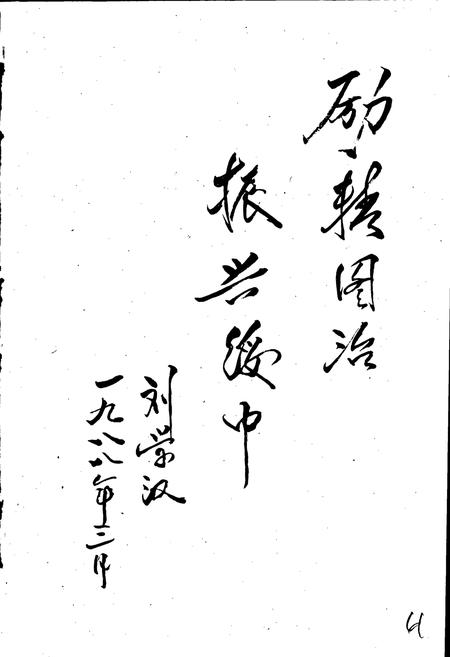 励精图治
振兴绥中
刘荣汉
一九八八年三月